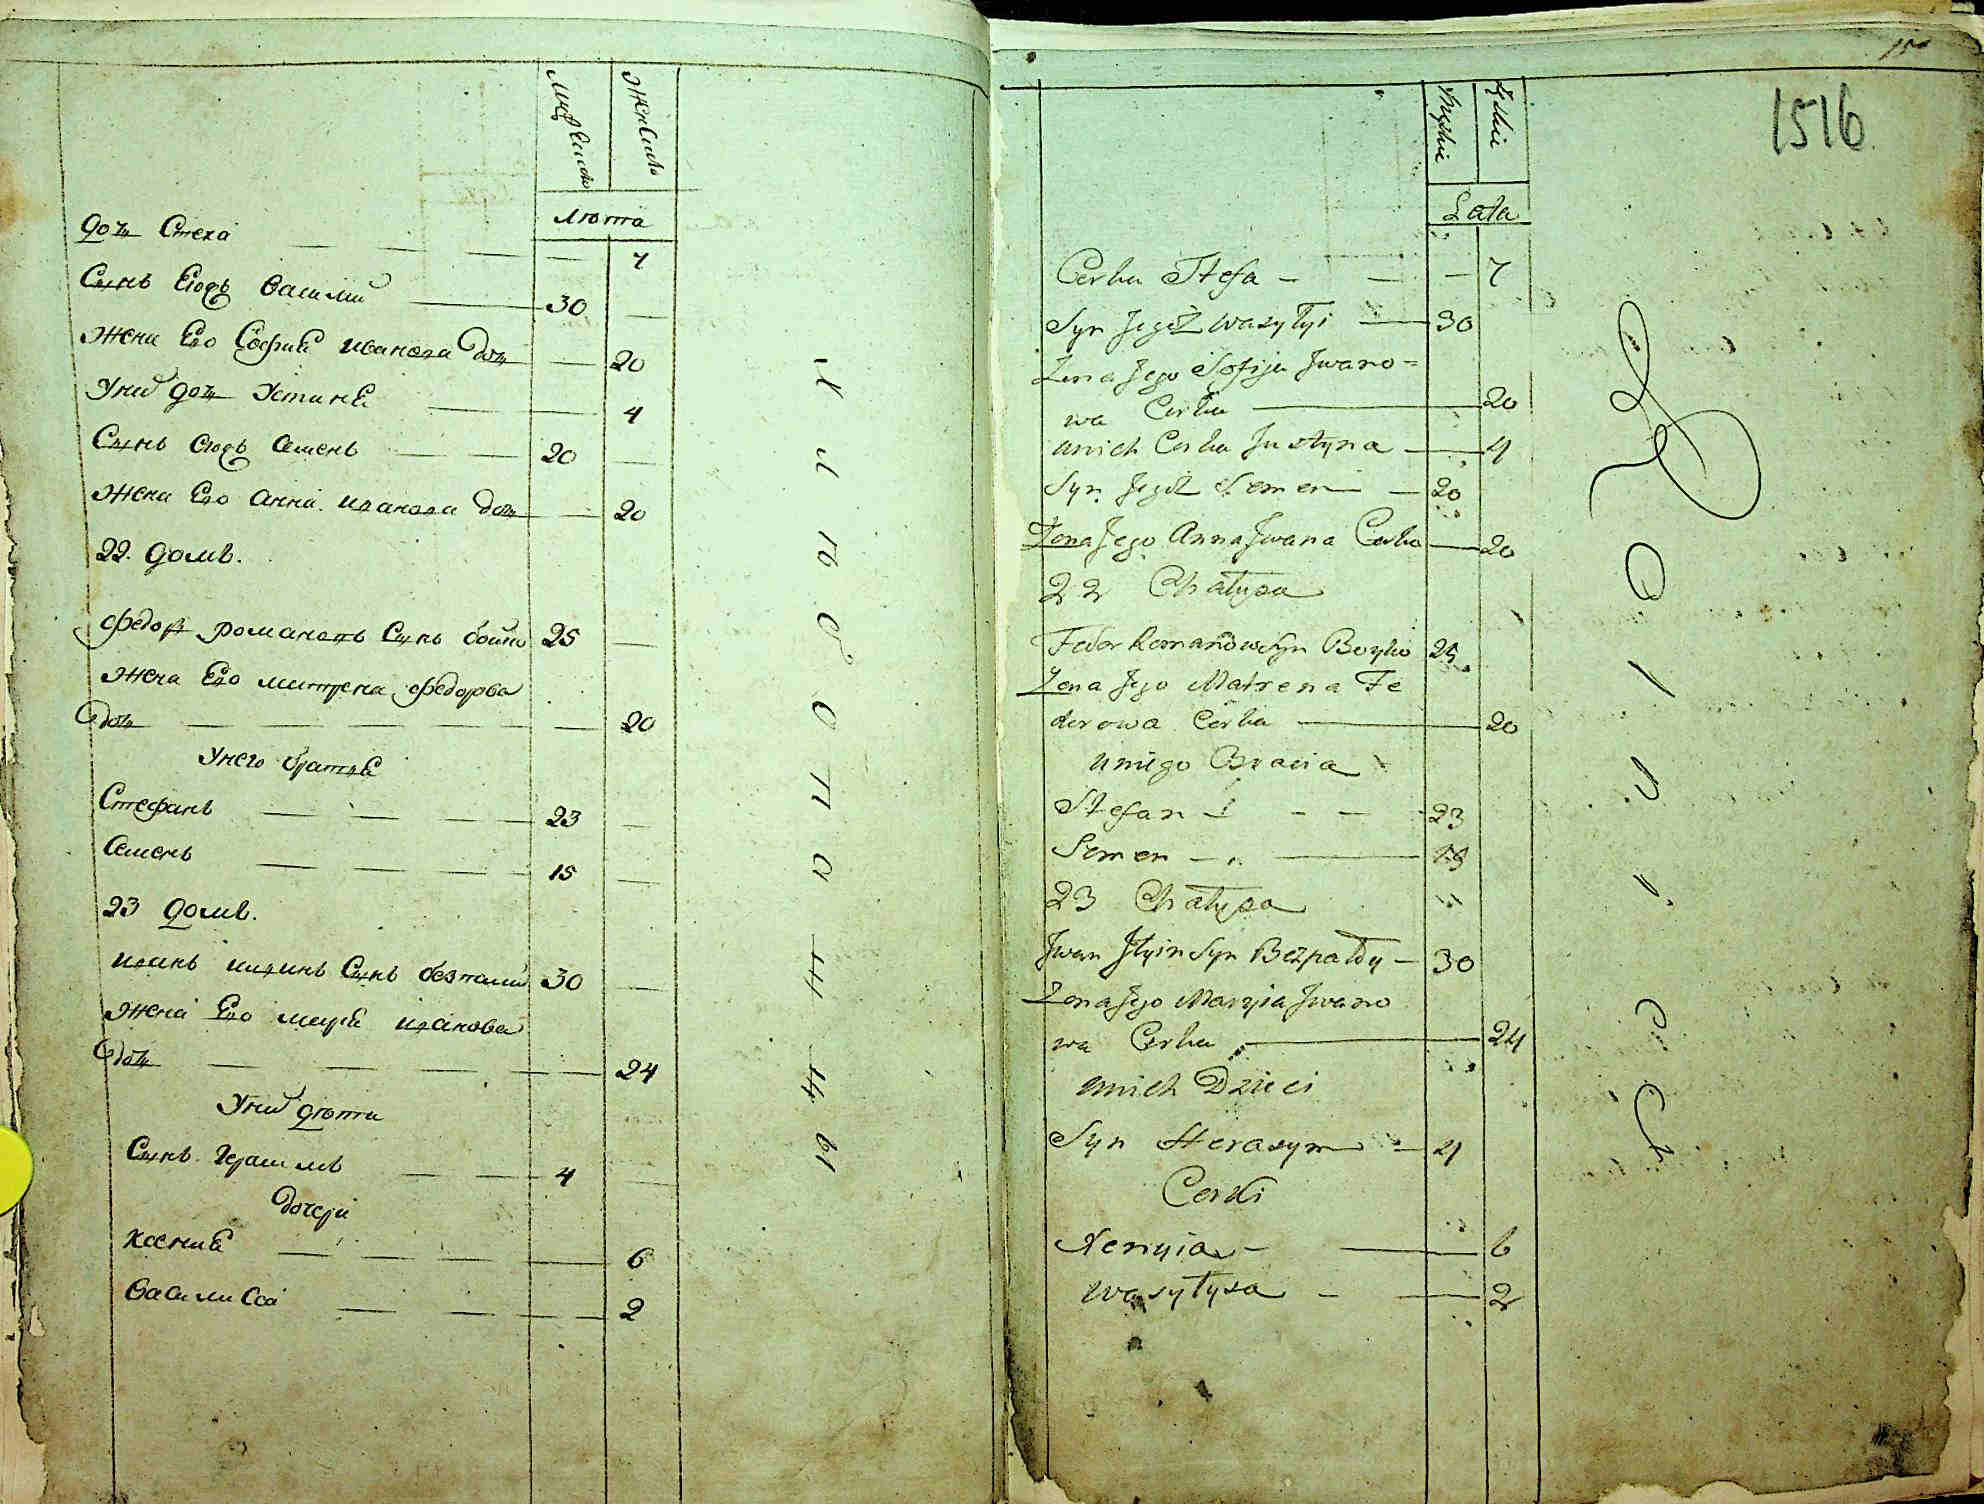 мужеска
женска
лѣта
дочь Стеха — — — — 7
Сынъ Егожъ Василий — 30 —
жена Его Софiя иванова дочь — 20
У них дочь Устинiя — — 4
Сынъ Егожъ Семенъ — — 20 —
жена Его Анна иванова дочь — 20
22. домъ.
Федоръ романовъ Сынъ бойко 25 —
жена Его матрена федорова
дочь — — — — 20
У него братья
Стефанъ — — — 23 —
Семенъ — — — 15 —
23 домъ.
иванъ ильинъ Сынъ безпалий 30 —
жена Его марiя иванова
дочь — — — — 24
У них дѣти
Сынъ Герасимъ — — 4 —
дочери
Ксения — — — — 6
Василиса — — — 2
15
1516
Męskie
Żeńskie
Lata
Corka Stefa — — — 7
Syn Jegoż Wasylyi — 30
Żena Jego Sofija Jwano=
wa Corka — 20
unich Corka Justyna — 4
Syn Jegoż Semen — 20
Żena Jego Anna Jwana Corka — 20
22 Chałupa
Fedor Romanow Syn Boyko 25
Żena Jego Matrena Fe
derowa Corka — 20
uniego Bracia
Stefan — — — 23
Semen — — 15
23 Chałupa
Jwan Jlyin Syn Bezpały — 30
Żena Jego Maryia Jwano
wa Corka — 24
unich Dzieci
Syn Herasym — 4
Corki
Xenyia — — 6
Wasyłysa — — 2